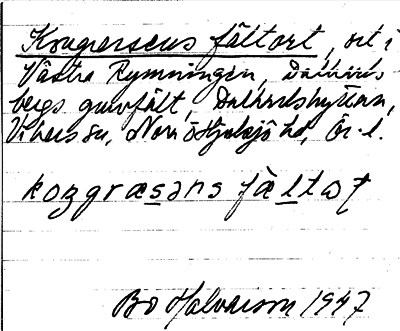 Kongressens fältort, ort i
Västra Rymningen, Dalkarls-
bergs gruvfält, Dalkarlshyttan,
Vikers sn, Nora o Hjulsjö hd, Ör. l.
kozgræsəns fæltot
Bo Halvarson 1947